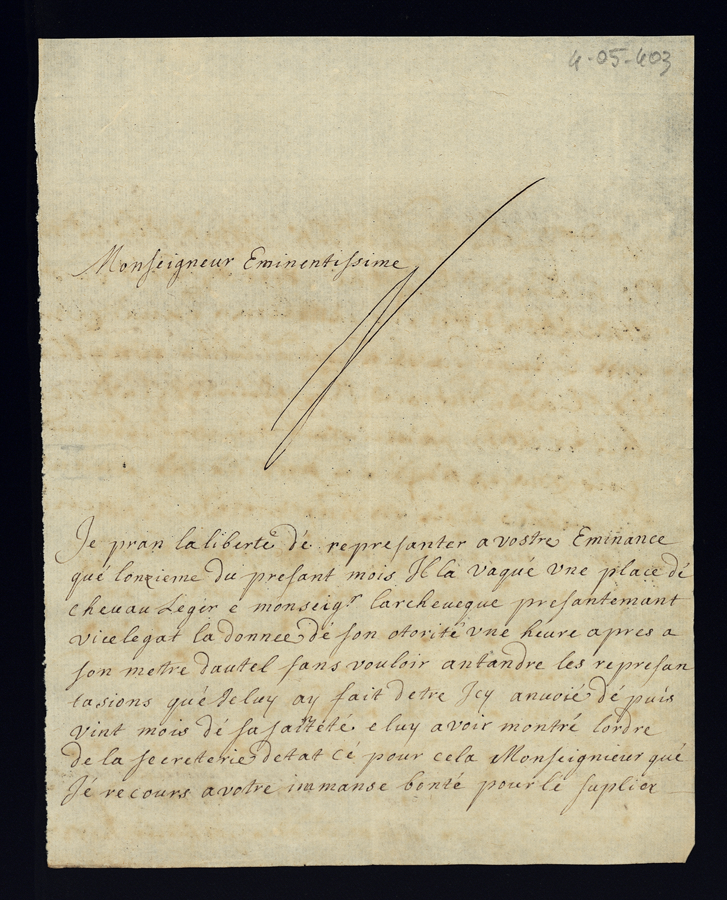 4-05-403
Monseigneur Eminentissime
Je pran la liberté dé represanter a vostre Eminance
qué lonzieme du presant mois Il la vaque vne place dé
chevau Léger é monseigr larcheveque presantemant
vicelegat la donnee dé son otorité vne heure apres a
son metre dautel sans vouloir antandre les represan
tasions qué Je luy ay fait detre Jcy anvoié dé puis
vint mois dé sa sainteté e luy avoir montré lordre
de la secreterie detat Cé pour cela Monseignieur qué
Jé recours a votre immanse bonté pour lé suplier